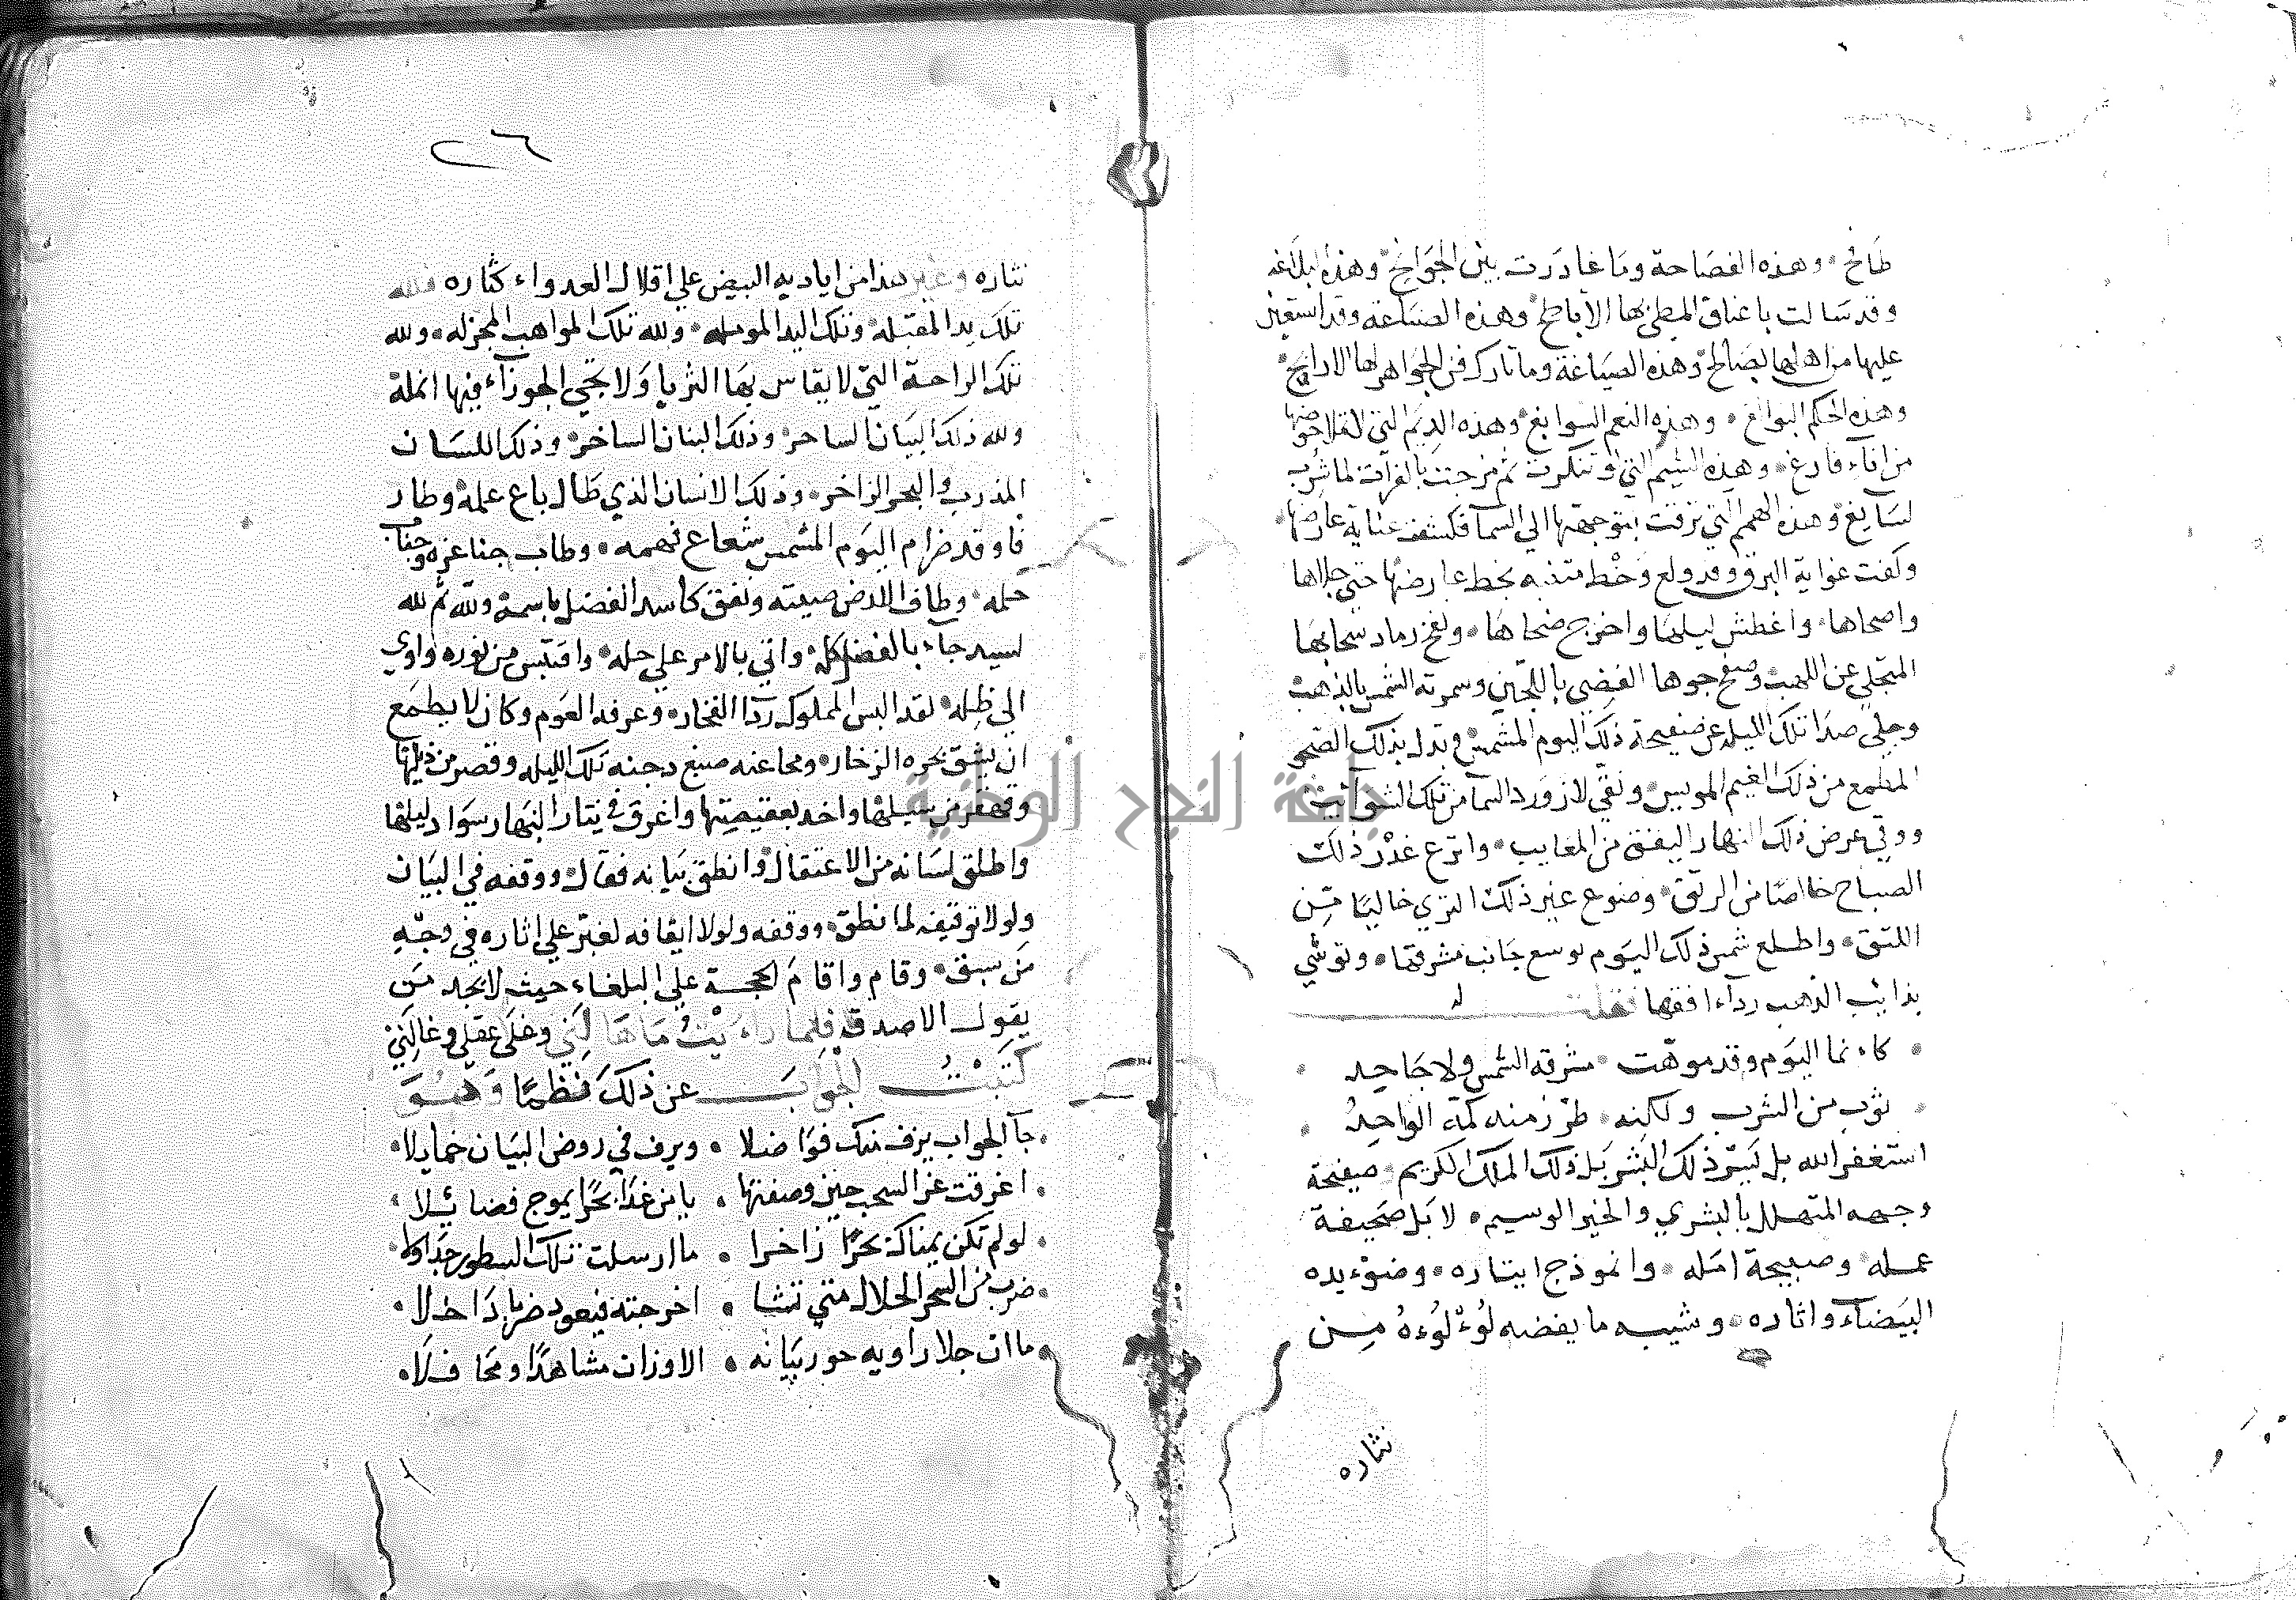 طافح وهذه الفصاحة وما غادرت بين الجوانح وهذه البلاغه
وقد سالت باعناق المطي بها الاباطح وهذه الصناعة وقد استعين
عليها من اهلها بصالح وهذه الصياغة وما تارك فن الجواهر لها
وهذه الحكم البوالغ وهذه النعم السوابغ وهذه الديم التي
من اناء فارغ وهذه الشيم التي لو تنكرت ثم مزجت بالفرات لما شرب
لسايغ وهذه الهمم التي ترفت بتوجهها الى السما فكشف عناية عارضها
وكفت غواية البرق وقد ولع وخط متنه بخط عارضها حتى جلاها
واصحاها واغطش ليلها واخرج ضحاها ونفخ رماد سحابها
المتجلي عن اللهب وصفح جوها الفضي باللجين وسمرته الشمس بالذهب
وجلي صدا تلك الليله عن صفيحة ذلك اليوم المشمس وبدل بذلك الضحو
المطمع من ذلك الغيم الموبس ونقي لازورد السما من تلك الشوائب
ووقي عرض ذلك النهار اليفق من المعايب واترع غدر ذلك
الصباح خالصا من الرنق وضوع عنبر ذلك الثري خاليا من
اللثق واطلع شمس ذلك اليوم يوسع جانب مشرقها وتوشي
بذايب الذهب رداء افقها فقلت
كاءنما اليوم وقد موهت مشرقه الشمس ولا جاحد
ثوب من الشرب ولكنه طرز منه كمه الواحد
استغفر الله بل بشر ذلك البشر بل ذلك الملك الكريم صفيحة
وجهه المتهلل بالبشري والخير الوسيم لا بل صحيفة
عمله وصبيحة امله وانموذج ايثاره وضوء يده
البيضاء واثاره وشبيه ما يفضه لؤلؤه من
نثاره
٢٦
نثاره وغير هذا من اياديه البيض علي اقلال العد واءكثاره فلله
تلك يد المقبله وتلك اليد الموملة ولله تلك المواهب المجزله ولله
تلك الراحة التي لا يقاس بها الثريا ولا تجي الجوزاء فيها انملة
ولله ذلك البيان الساحر وذلك البنان الساخر وذلك اللسان
المذرب والبحر الزاخر وذلك الانسان الذي طال باع علمه وطار
فاوقد ضرام اليوم المشمس شعاع فهمه وطاب جنا غزه وجناب
حلمه وطاف الارض صيته ونفق كاسد الفضل باسمه ولله ثم لله
لسيد جاء بالفضل كله واتي بالامر علي حله واقتبس من نوره واوي
الي ظله لقد البس المملوك ردا الفخار وعرفه العوم وكان لا يطمع
ان يشق بحره الزخار ومحا عنه صبغ دجنه تلك الليله وقصر من ذيلها
وقهقر من سيلها واخد بعقيصتها واغرق في تيار النهار سواد ليلها
واطلق لسانه من الاعتقال وانطق بيانه فقال ووقفه في البيان
ولولا توقيفه لما نطق ووقفه ولولا ايقافه لغبر علي اثاره في وجه
من سبق وقام واقام الحجة علي البلغاء حيث لا يجد من
يقول الا صدق فلما راءيت ما هالني وغلي عقلي وغالني
كتبت الجواب عن ذلك نظما وهو
جآ الجواب يزف منك فواضلا ويرف في روض البيان خمايلا
اغرقت غر السحب حين وصفتها يا من غدا بحرا يموج فضائلا
لو لم تكن يمناك بحرا زاخرا ما ارسلت تلك السطور جداولا
ضرب من السحر الحلال متي تشا اخرجته فيعود ضربا داخلا
ما ان جلا راويه حور بيانه الا وزان مشاهدا ومحافلا
جامعة النجاح الوطنية